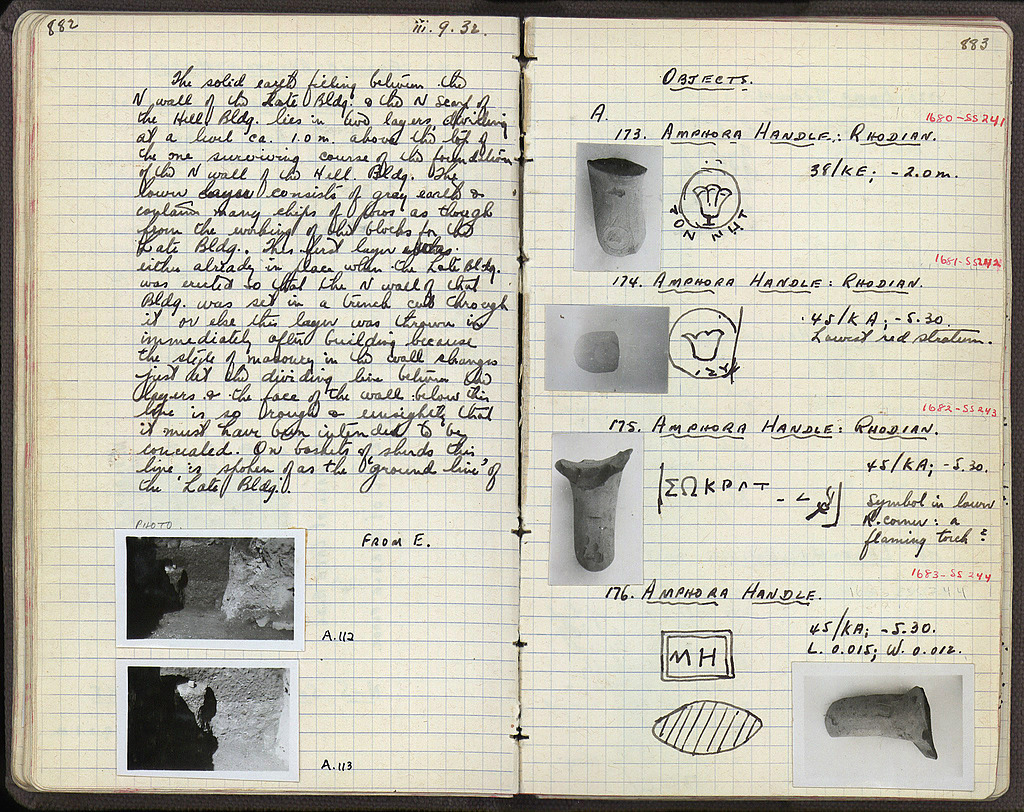 882
iii. 9. 32.
The solid earth filling between the
N wall of the Late Bldg. & the N scarp of
the Hill Bldg. lies in two layers, dividing
at a level ca. 1.0 m. above the top of
the one surviving course of the foundation
of the N wall of the Hill Bldg. The
lower layer consists of gray earth &
contains many chips of poros as though
from the working of the blocks for the
Late Bldg. This first layer was
either already in place when the Late Bldg.
was erected so that the N wall of that
Bldg. was set in a trench cut through
it or else this layer was thrown in
immediately after building because
the style of masonry in the wall changes
just at the dividing line between the
layers & the face of the wall below this
line is so rough & unsightly that
it must have been intended to be
concealed. On baskets of sherds this
line is spoken of as the "ground line" of
the 'Late Bldg.'
PHOTO
FROM E.
A.112
A.113
883
OBJECTS.
A.
1680-SS241
173. AMPHORA HANDLE: RHODIAN.
38/KE; -2.0 m.
ΖΩΝ ΝΗΤ
1681-SS242
174. AMPHORA HANDLE: RHODIAN.
45/KA; -5.30.
Lowest red stratum.
1682-SS243
175. AMPHORA HANDLE: RHODIAN.
45/KA; -5.30.
ΣΩΚΡΑΤ
Symbol in lower
R. corner: a
flaming torch?
1683-SS244
176. AMPHORA HANDLE.
45/KA; -5.30.
L. 0.015; W. 0.012.
ΜΗ